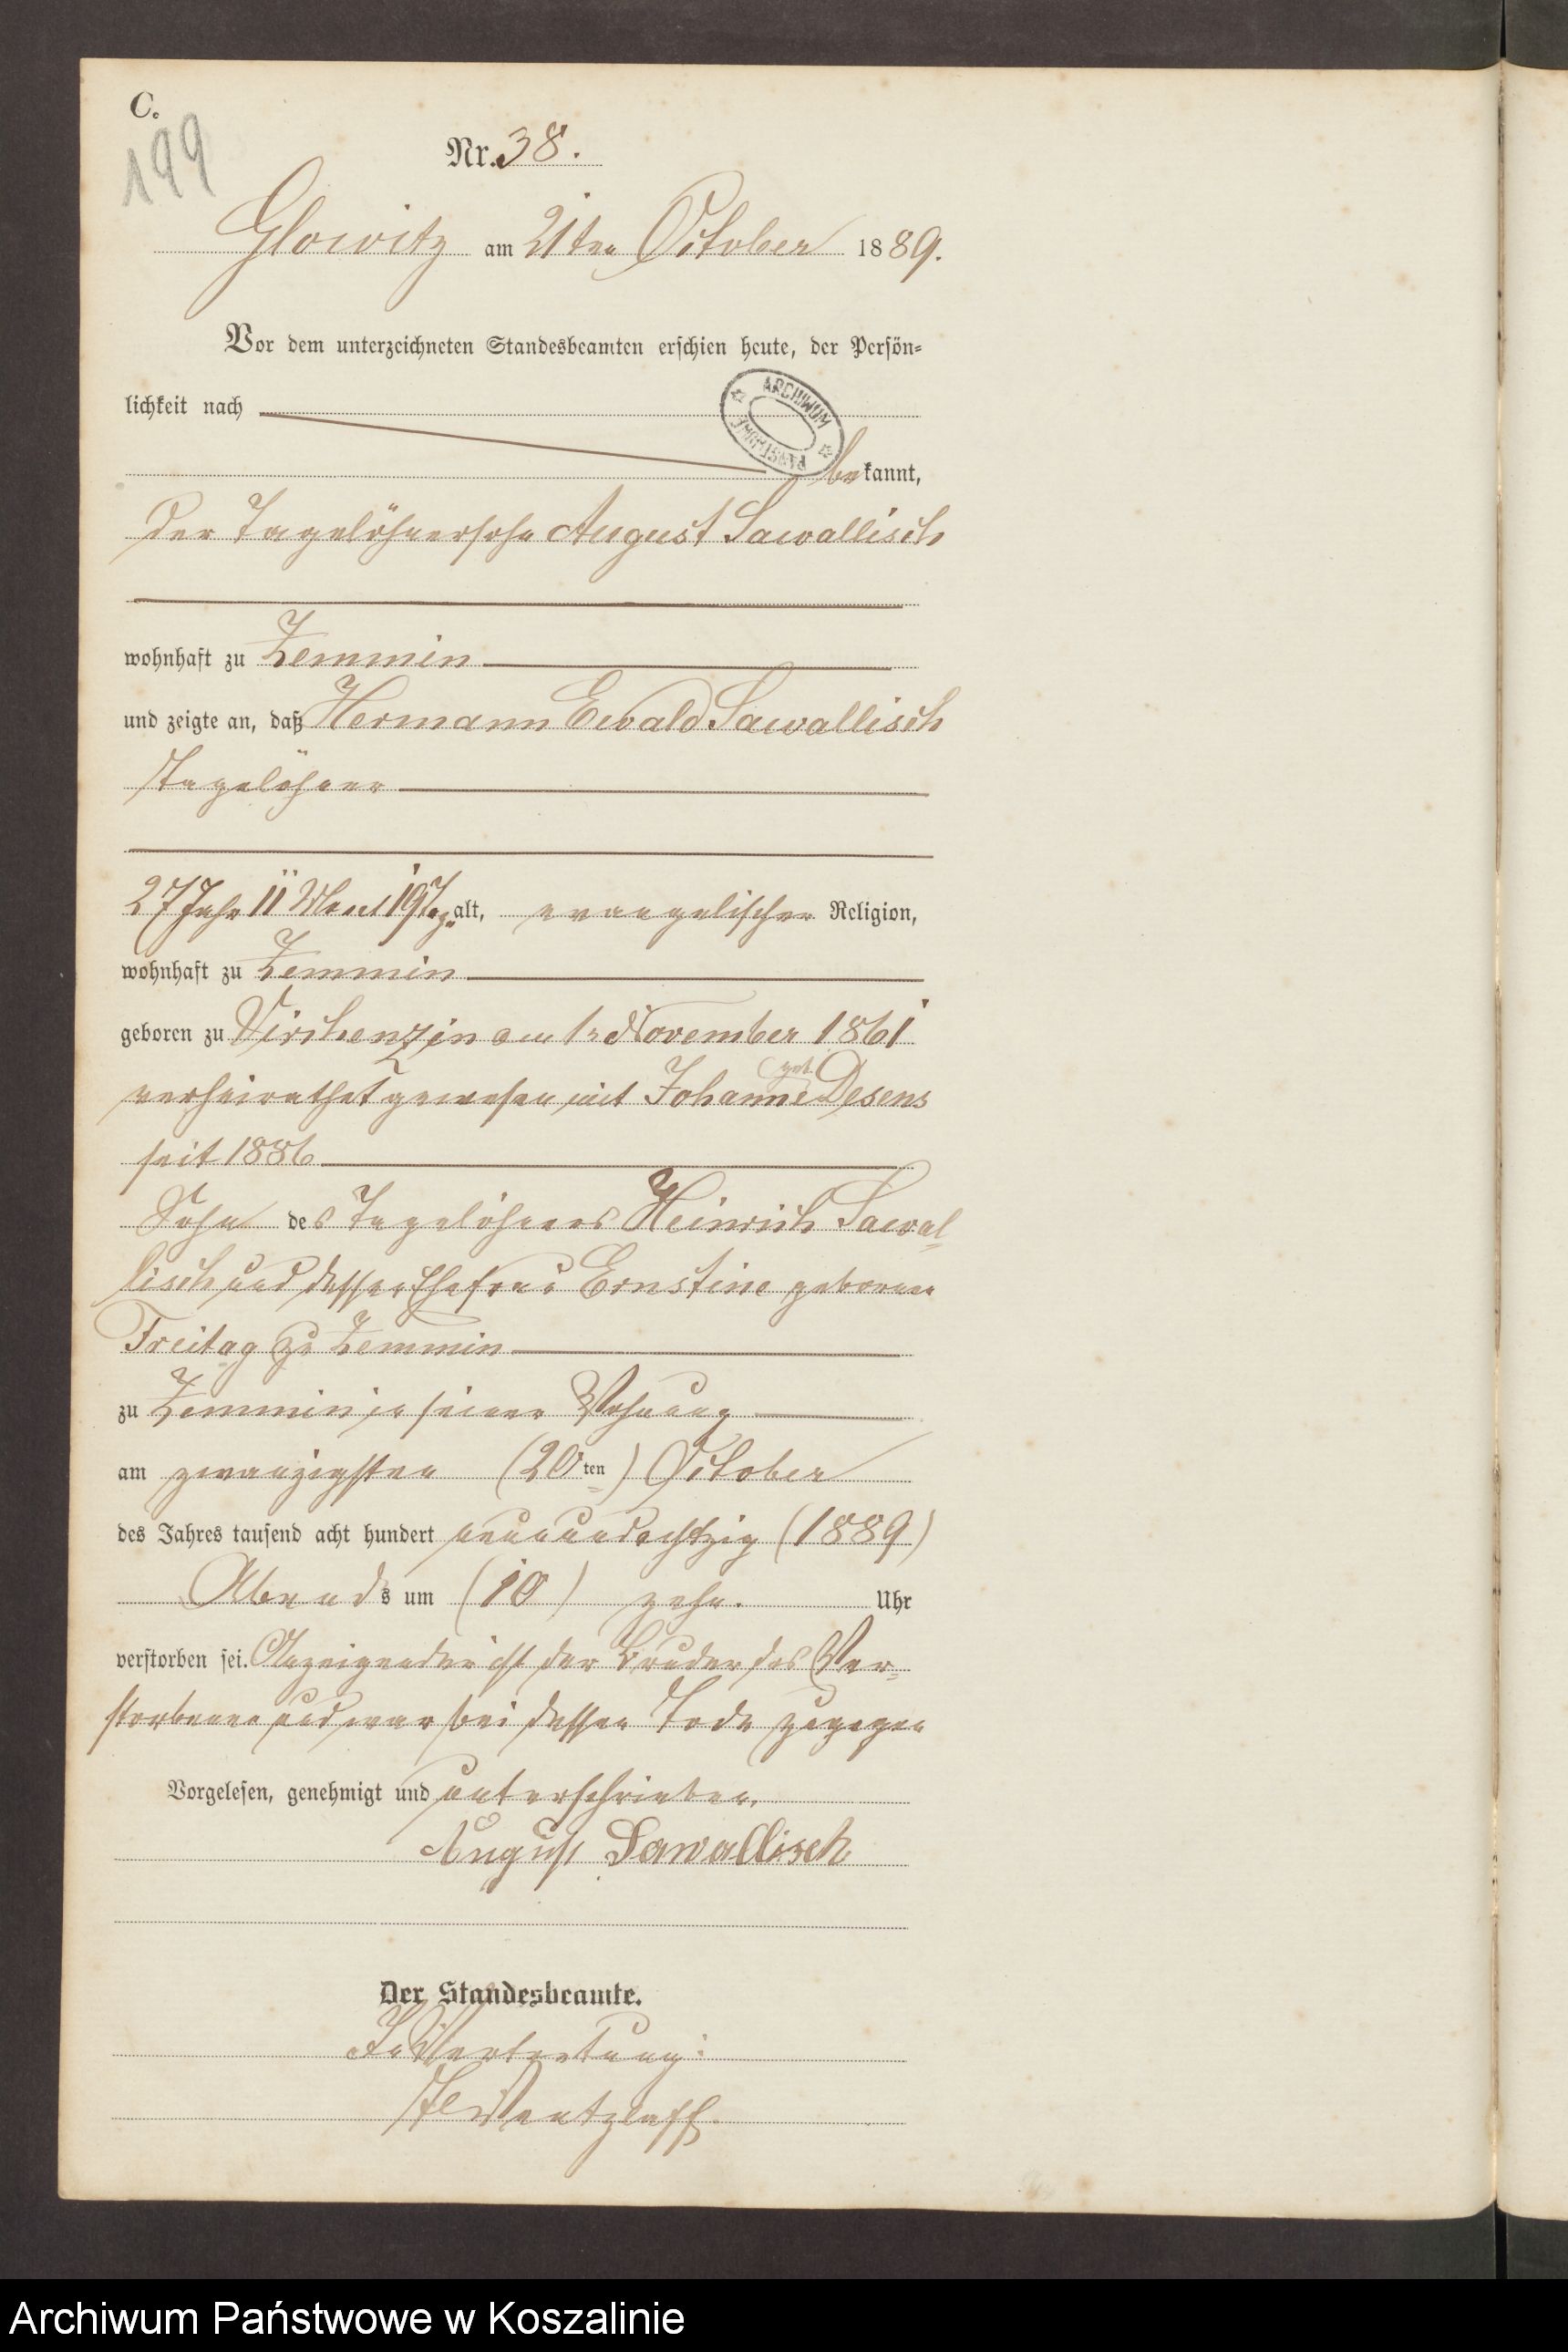 C.
199
Nr. 38.
Glowitz am 21ten October 1889.
Vor dem unterzeichneten Standesbeamten erschien heute, der Persön=
lichkeit nach
ARCHIWUM PAŃSTWOWE
bekannt,
der Tagelöhnersohn August Sawallisch
wohnhaft zu Zemmin
und zeigte an, daß Hermann Ewald Sawallisch
Tagelöhner
27 Jahr 11 Monat 19 Tag alt, evangelischer Religion,
wohnhaft zu Zemmin
geboren zu Virchenzin am 1n November 1861
verheirathet gewesen mit Johanne geb. Desens
seit 1886
Sohn des Tagelöhners Heinrich Sawal=
lisch und dessen Ehefrau Ernstine geborene
Freitag zu Zemmin
zu Zemmin in seiner Wohnung
am zwanzigsten (20ten) October
des Jahres tausend acht hundert neunundachtzig (1889)
Abends um (10) zehn. Uhr
verstorben sei. Anzeigender ist der Bruder des Ver=
storbenen und war bei dessen Tode zugegen
Vorgelesen, genehmigt und unterschrieben.
August Sawallisch
Der Standesbeamte.
In Vertretung:
Wentzlaff.
Archiwum Państwowe w Koszalinie